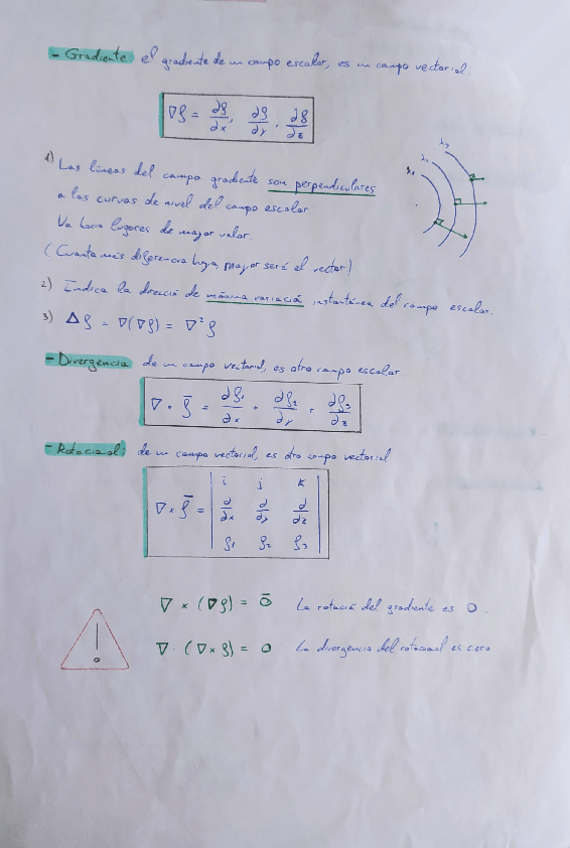 - Gradiente el gradiente de un campo escalar, es un campo vectorial.
∇f = ∂f/∂x, ∂f/∂y, ∂f/∂z
1) Las líneas del campo gradiente son perpendiculares
a las curvas de nivel del campo escalar
Va hacia lugares de mayor valor.
(Cuanta más diferencia haya, mayor será el vector)
2) Indica la direción de máxima variación instantánea del campo escalar.
3) Δf = ∇(∇f) = ∇²f
- Divergencia de un campo vectorial, es otro campo escalar
∇ · f̄ = ∂f₁/∂x + ∂f₂/∂y + ∂f₃/∂z
- Rotacional: de un campo vectorial, es otro campo vectorial
∇ × f̄ = | i j k
∂/∂x ∂/∂y ∂/∂z
f₁ f₂ f₃ |
∇ × (∇f) = 0̄ La rotació del gradiente es 0.
∇ · (∇ × f) = 0 La divergencia del rotacional es cero